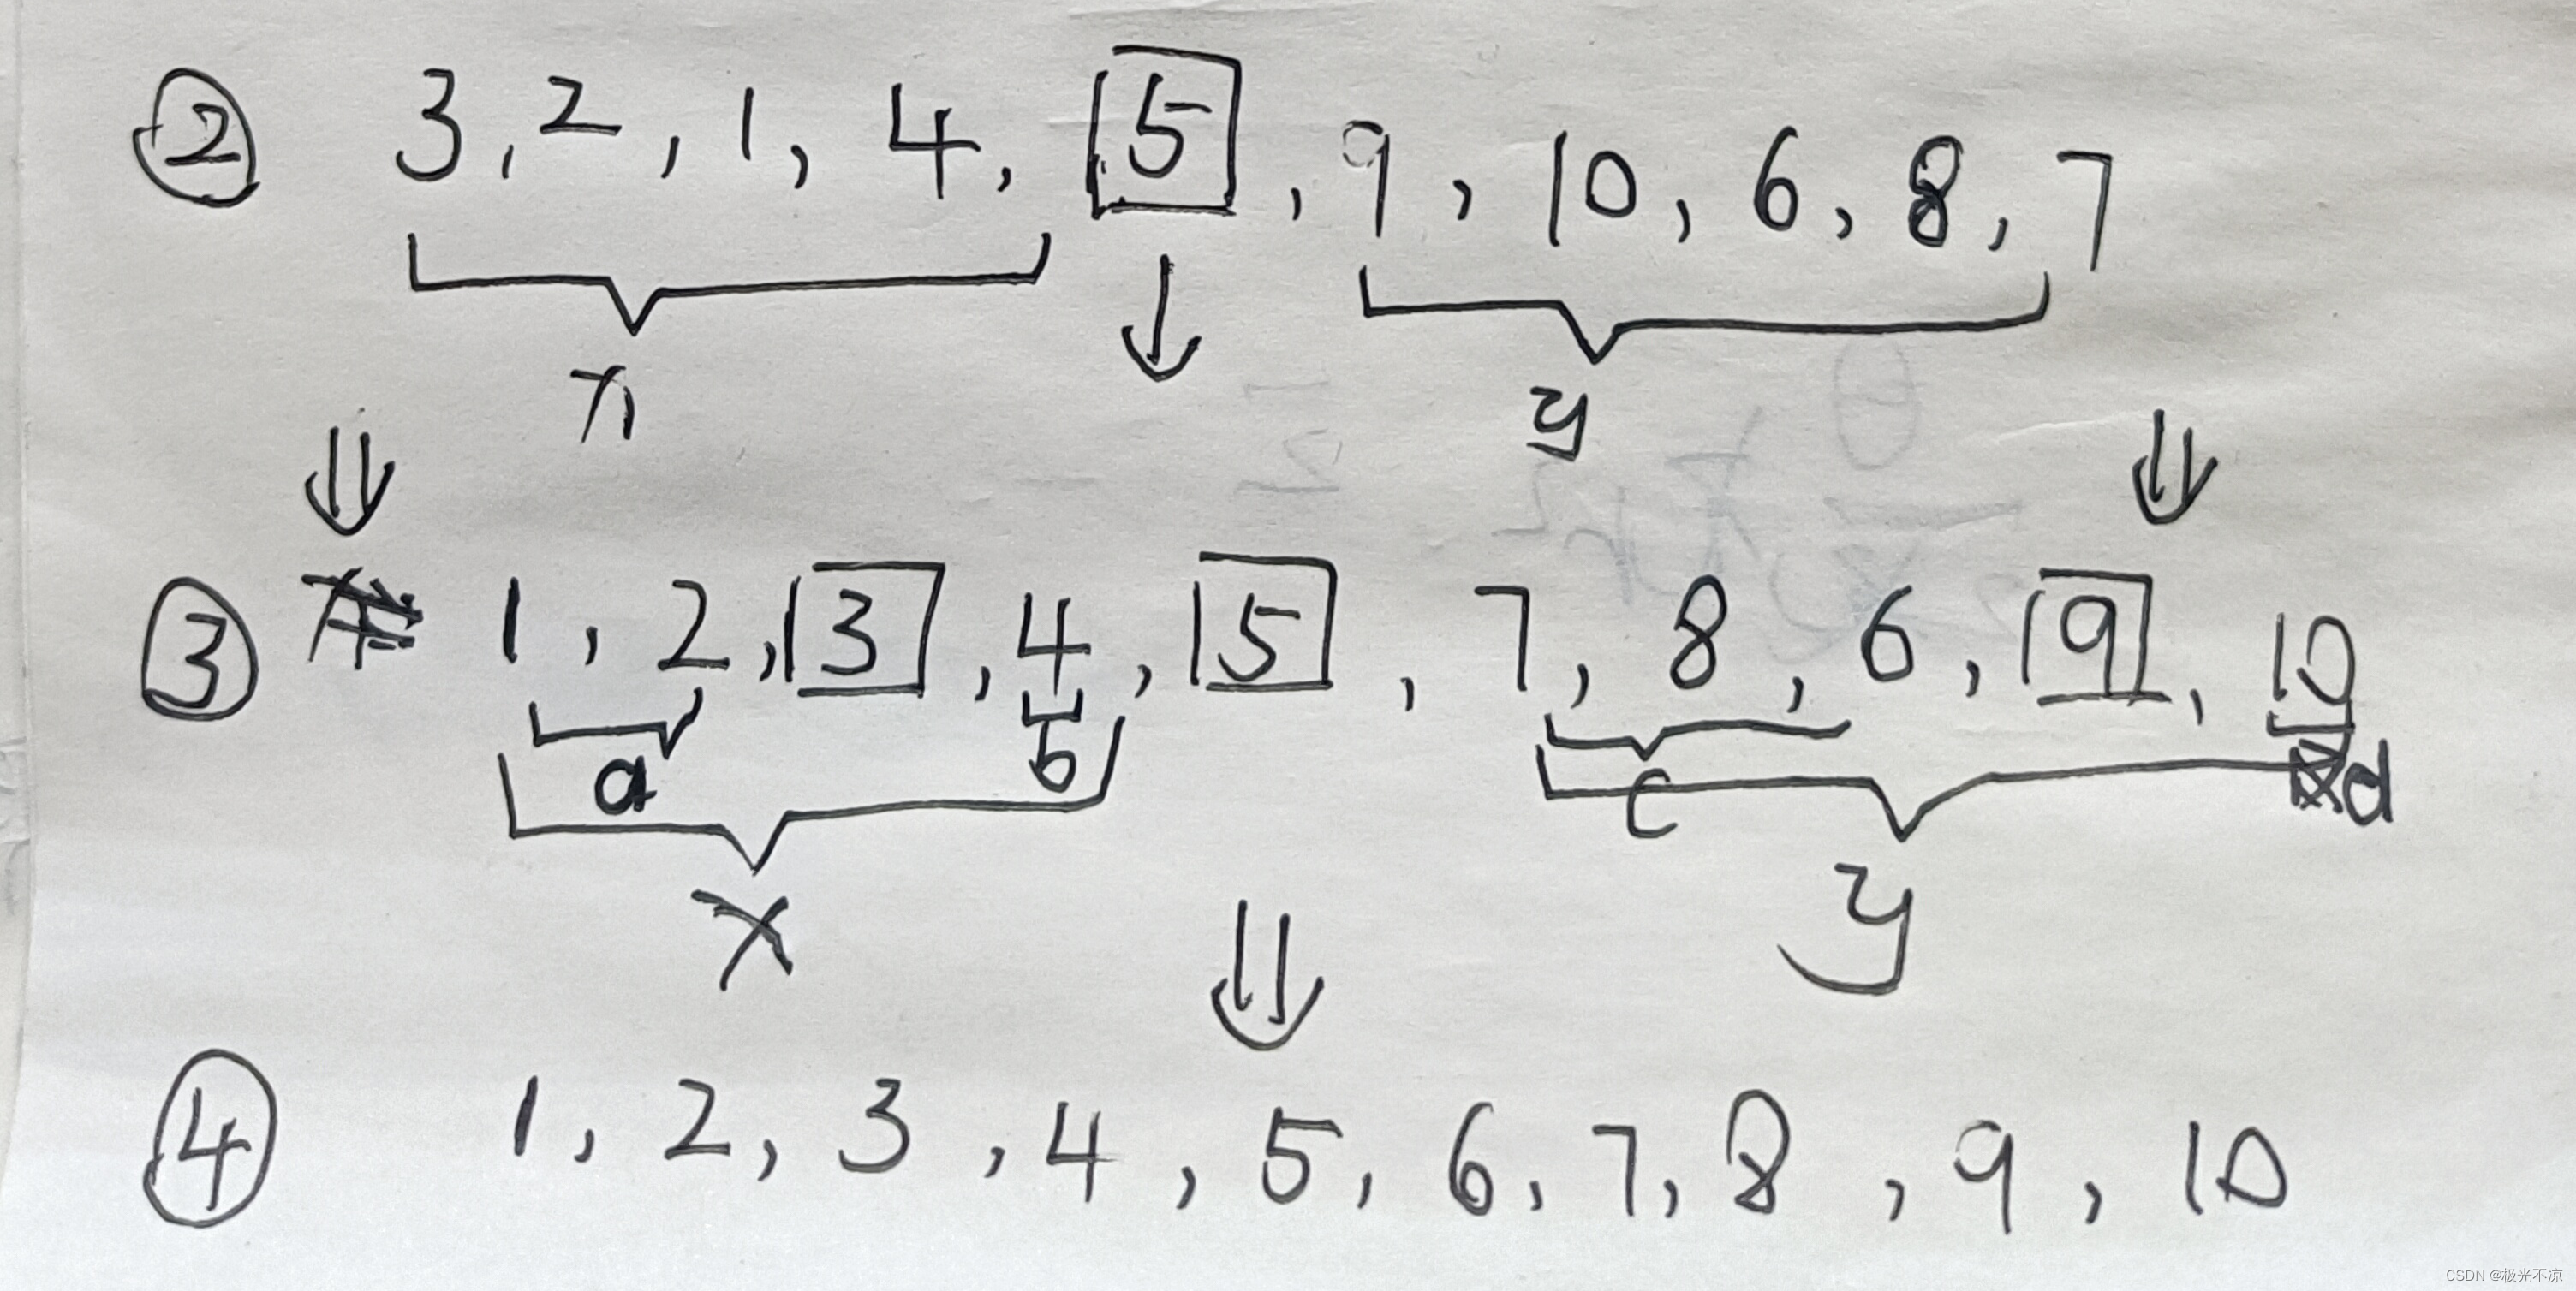 ② 3, 2, 1, 4, 5, 9, 10, 6, 8, 7
x y
③ 1, 2, 3, 4, 5, 7, 8, 6, 9, 10
a b c d
x y
④ 1, 2, 3, 4, 5, 6, 7, 8, 9, 10
CSDN @极光不凉